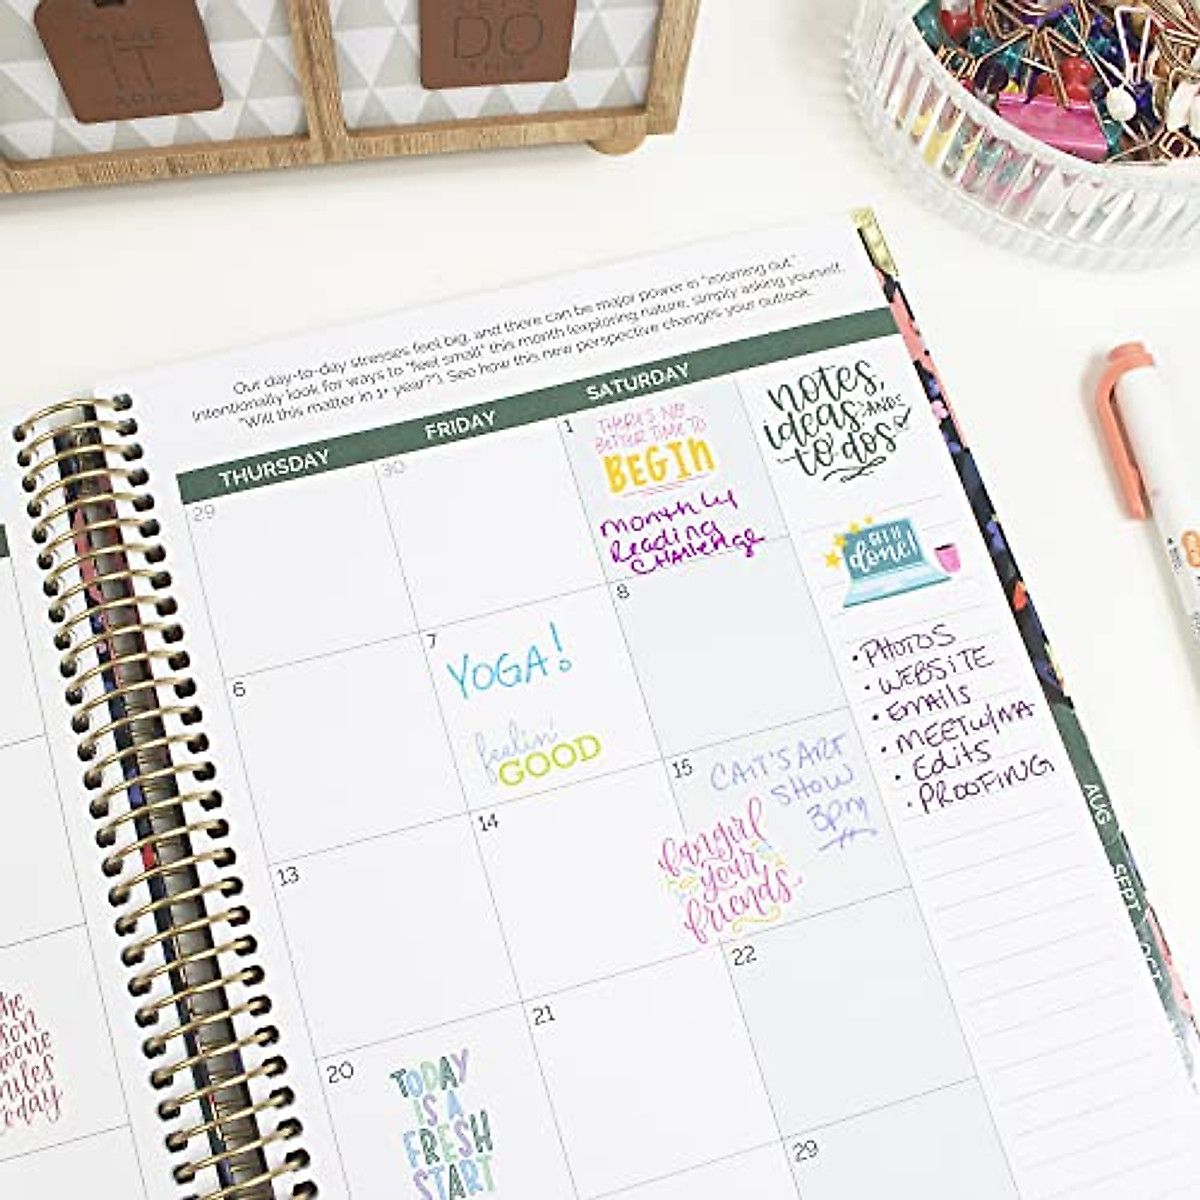 MAKE
IT
HAPPEN
LET'S
DO
THIS
Our day-to-day stresses feel big, and there can be major power in "zooming out."
Intentionally look for ways to "feel small" this month (exploring nature, simply asking yourself,
"Will this matter in 1+ year?"). See how this new perspective changes your outlook.
THURSDAY
FRIDAY
SATURDAY
29
30
1
THERE'S NO
BETTER TIME TO
BEGIN
monthly
Reading
Challenge
notes,
ideas, AND
to dos
GET IT
done!
6
7
YOGA!
feelin'
GOOD
8
• PHOTOS
• WEBSITE
• EMAILS
• MEET W/MA
• Edits
• PROOFING
13
14
15
CAIT'S ART
SHOW
3pm
fangirl
your
friends
20
TODAY
IS A
FRESH
START
21
22
29
the
miles
today
AUG
SEPT
OCT